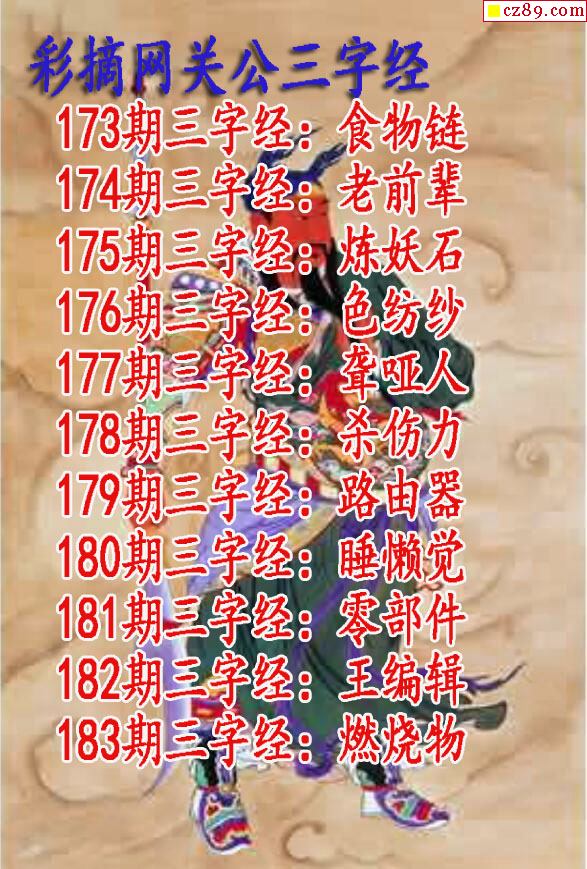 cz89.com
彩摘网关公三字经
173期三字经：食物链
174期三字经：老前辈
175期三字经：炼妖石
176期三字经：色纺纱
177期三字经：聋哑人
178期三字经：杀伤力
179期三字经：路由器
180期三字经：睡懒觉
181期三字经：零部件
182期三字经：王编辑
183期三字经：燃烧物